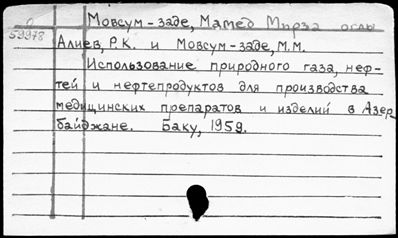 Мовсум-заде, Мамед Мирза оглы
59978
Алиев, Р.К. и Мовсум-заде, М.М.
Использование природного газа, неф-
тей и нефтепродуктов для производства
медицинских препаратов и изделий в Азер
байджане. Баку, 1959.